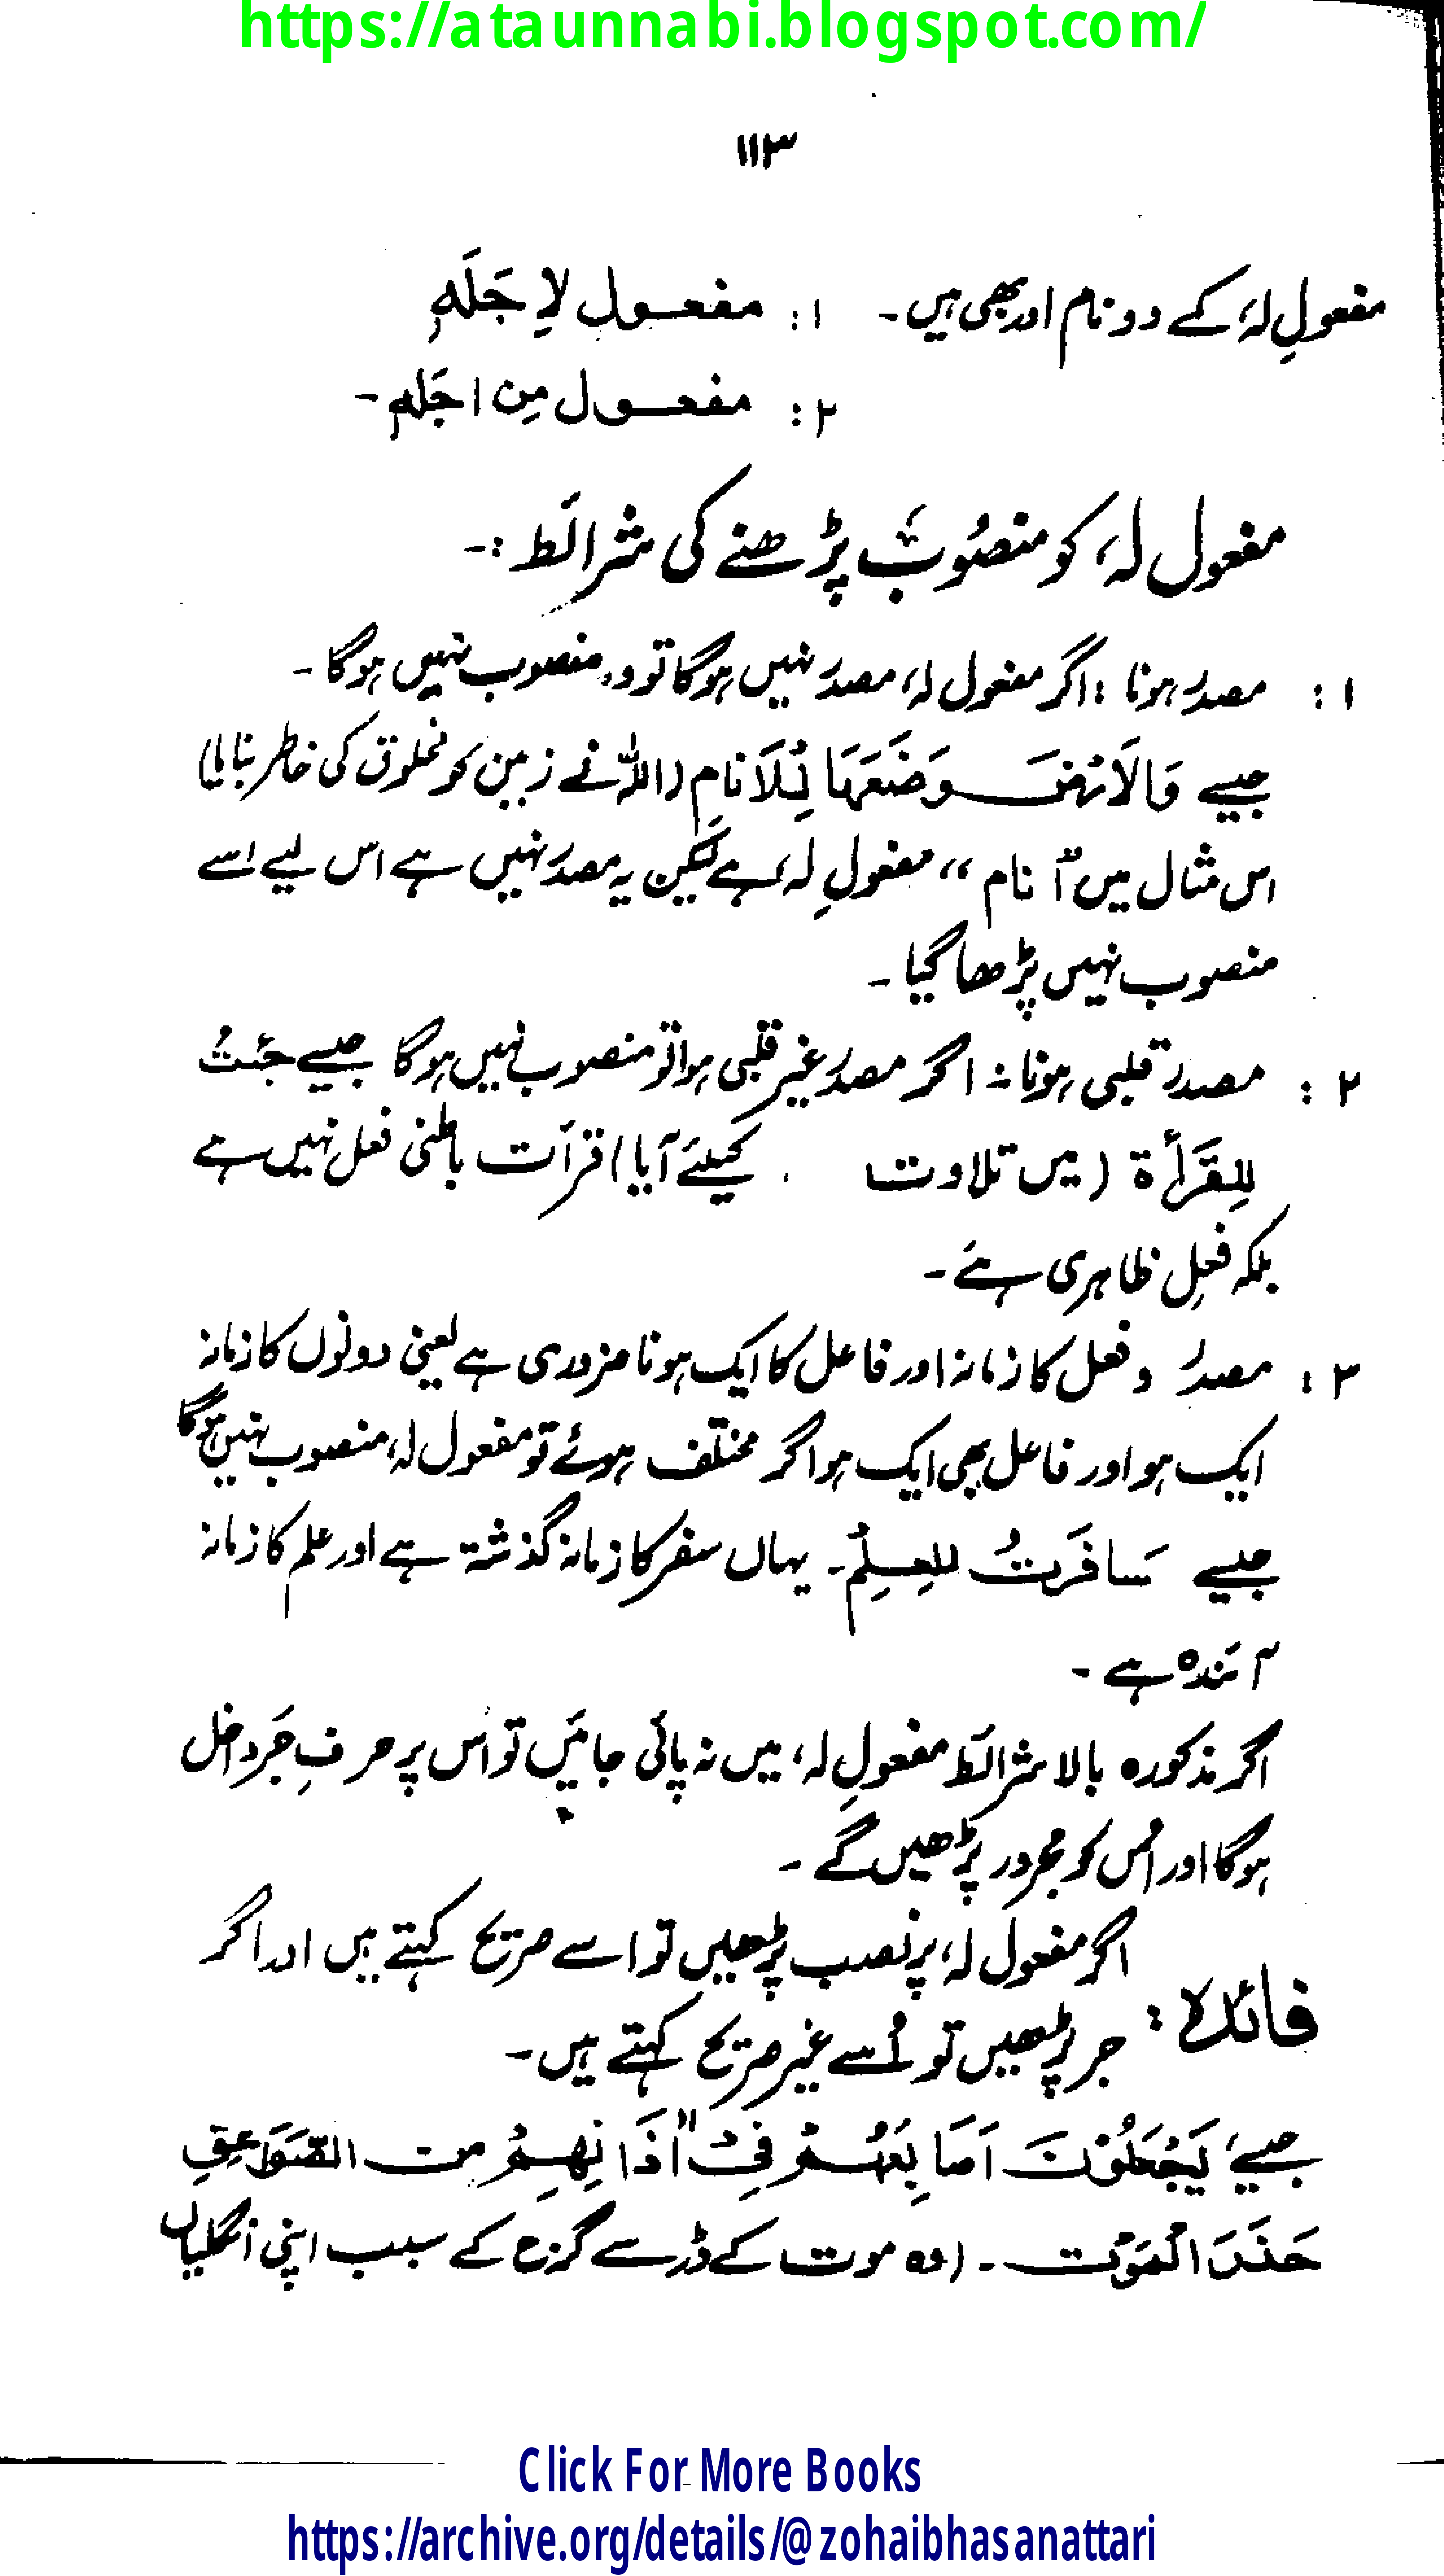 https://ataunnabi.blogspot.com/
۱۱۳
مفعولِ لہٗ کے دو نام اور بھی ہیں۔ ۱: مفعول لِاَجَلَہٖ
۲: مفعول مِن اجَلہٖ۔
مفعول لہٗ کو منصُوب پڑھنے کی شرائط :۔
۱: مصدر ہونا : اگر مفعول لہٗ مصدر نہیں ہوگا تو وہ منصوب نہیں ہوگا۔
جیسے وَالَارْضَ وَضَعَہَا لِلَانَامِ (اللہ نے زمین کو مخلوق کی خاطر بنایا)
اس مثال میں "اَنام" مفعولِ لہٗ ہے لیکن یہ مصدر نہیں ہے اس لیے اسے
منصوب نہیں پڑھا گیا۔
۲: مصدر قلبی ہونا :۔ اگر مصدر غیر قلبی ہوا تو منصوب نہیں ہوگا جیسے جئتُ
لِلقَرَأۃ (میں تلاوت کیلئے آیا) قرأت باطنی فعل نہیں ہے
بلکہ فعلِ ظاہری ہے۔
۳: مصدر و فعل کا زمانہ اور فاعل کا ایک ہونا ضروری ہے یعنی دونوں کا زمانہ
ایک ہو اور فاعل بھی ایک ہو اگر مختلف ہوئے تو مفعول لہٗ منصوب نہیں ہوگا
جیسے سَافَرَتُ للعِلِمْ۔ یہاں سفر کا زمانہ گذشتہ ہے اور علم کا زمانہ
آئندہ ہے۔
اگر مذکورہ بالا شرائط مفعولِ لہٗ میں نہ پائی جائیں تو اس پر حرفِ جَر داخل
ہوگا اور اُس کو مجرور پڑھیں گے۔
فائدہ : اگر مفعول لہٗ پر نصب پڑھیں تو اسے صریح کہتے ہیں اور اگر
جر پڑھیں تو اُسے غیر صریح کہتے ہیں۔
جیسے یَجْعَلُوْنَ اَصَابِعَہُمْ فِیْ اٰذَانِھِمْ مِن الصَّوَاعِقِ
حَذَرَ الْمَوْت۔ (وہ موت کے ڈر سے گرج کے سبب اپنی انگلیاں
Click For More Books
https://archive.org/details/@zohaibhasanattari